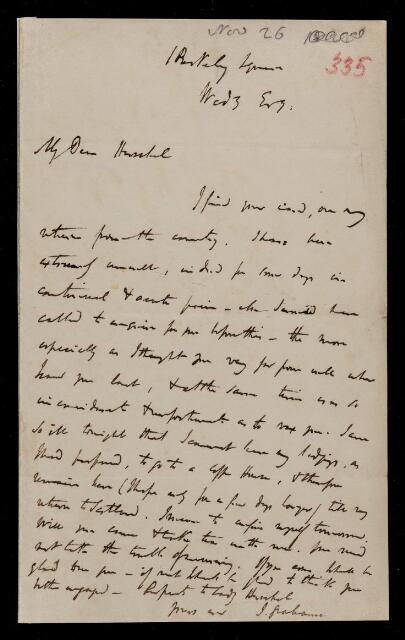 Nov 26
335
1 Berkeley Square
Wedy Evg.
My Dear Herschel
I find your card, on my
return from the country. I have been
extremely unwell, indeed for some days in
continual & acute pain - else I would have
called to enquire for you before this - the more
especially as I thought you very far from well when
I saw you last, & at the same time was so
inconsiderate & importunate as to vex you. I am
so ill tonight that I cannot leave my lodgings, as
I had proposed, to go to a Coffee House, & therefore
remain here (I hope only for a few days longer) till my
return to Scotland. I mean to confine myself tomorrow.
Will you come & take tea with me. You need
not tell the trouble of answering. If you come, I shall be
glad to see you - if not I shall be glad to think you
better engaged - Respects to Lady Herschel
Yours ever J. Grahame